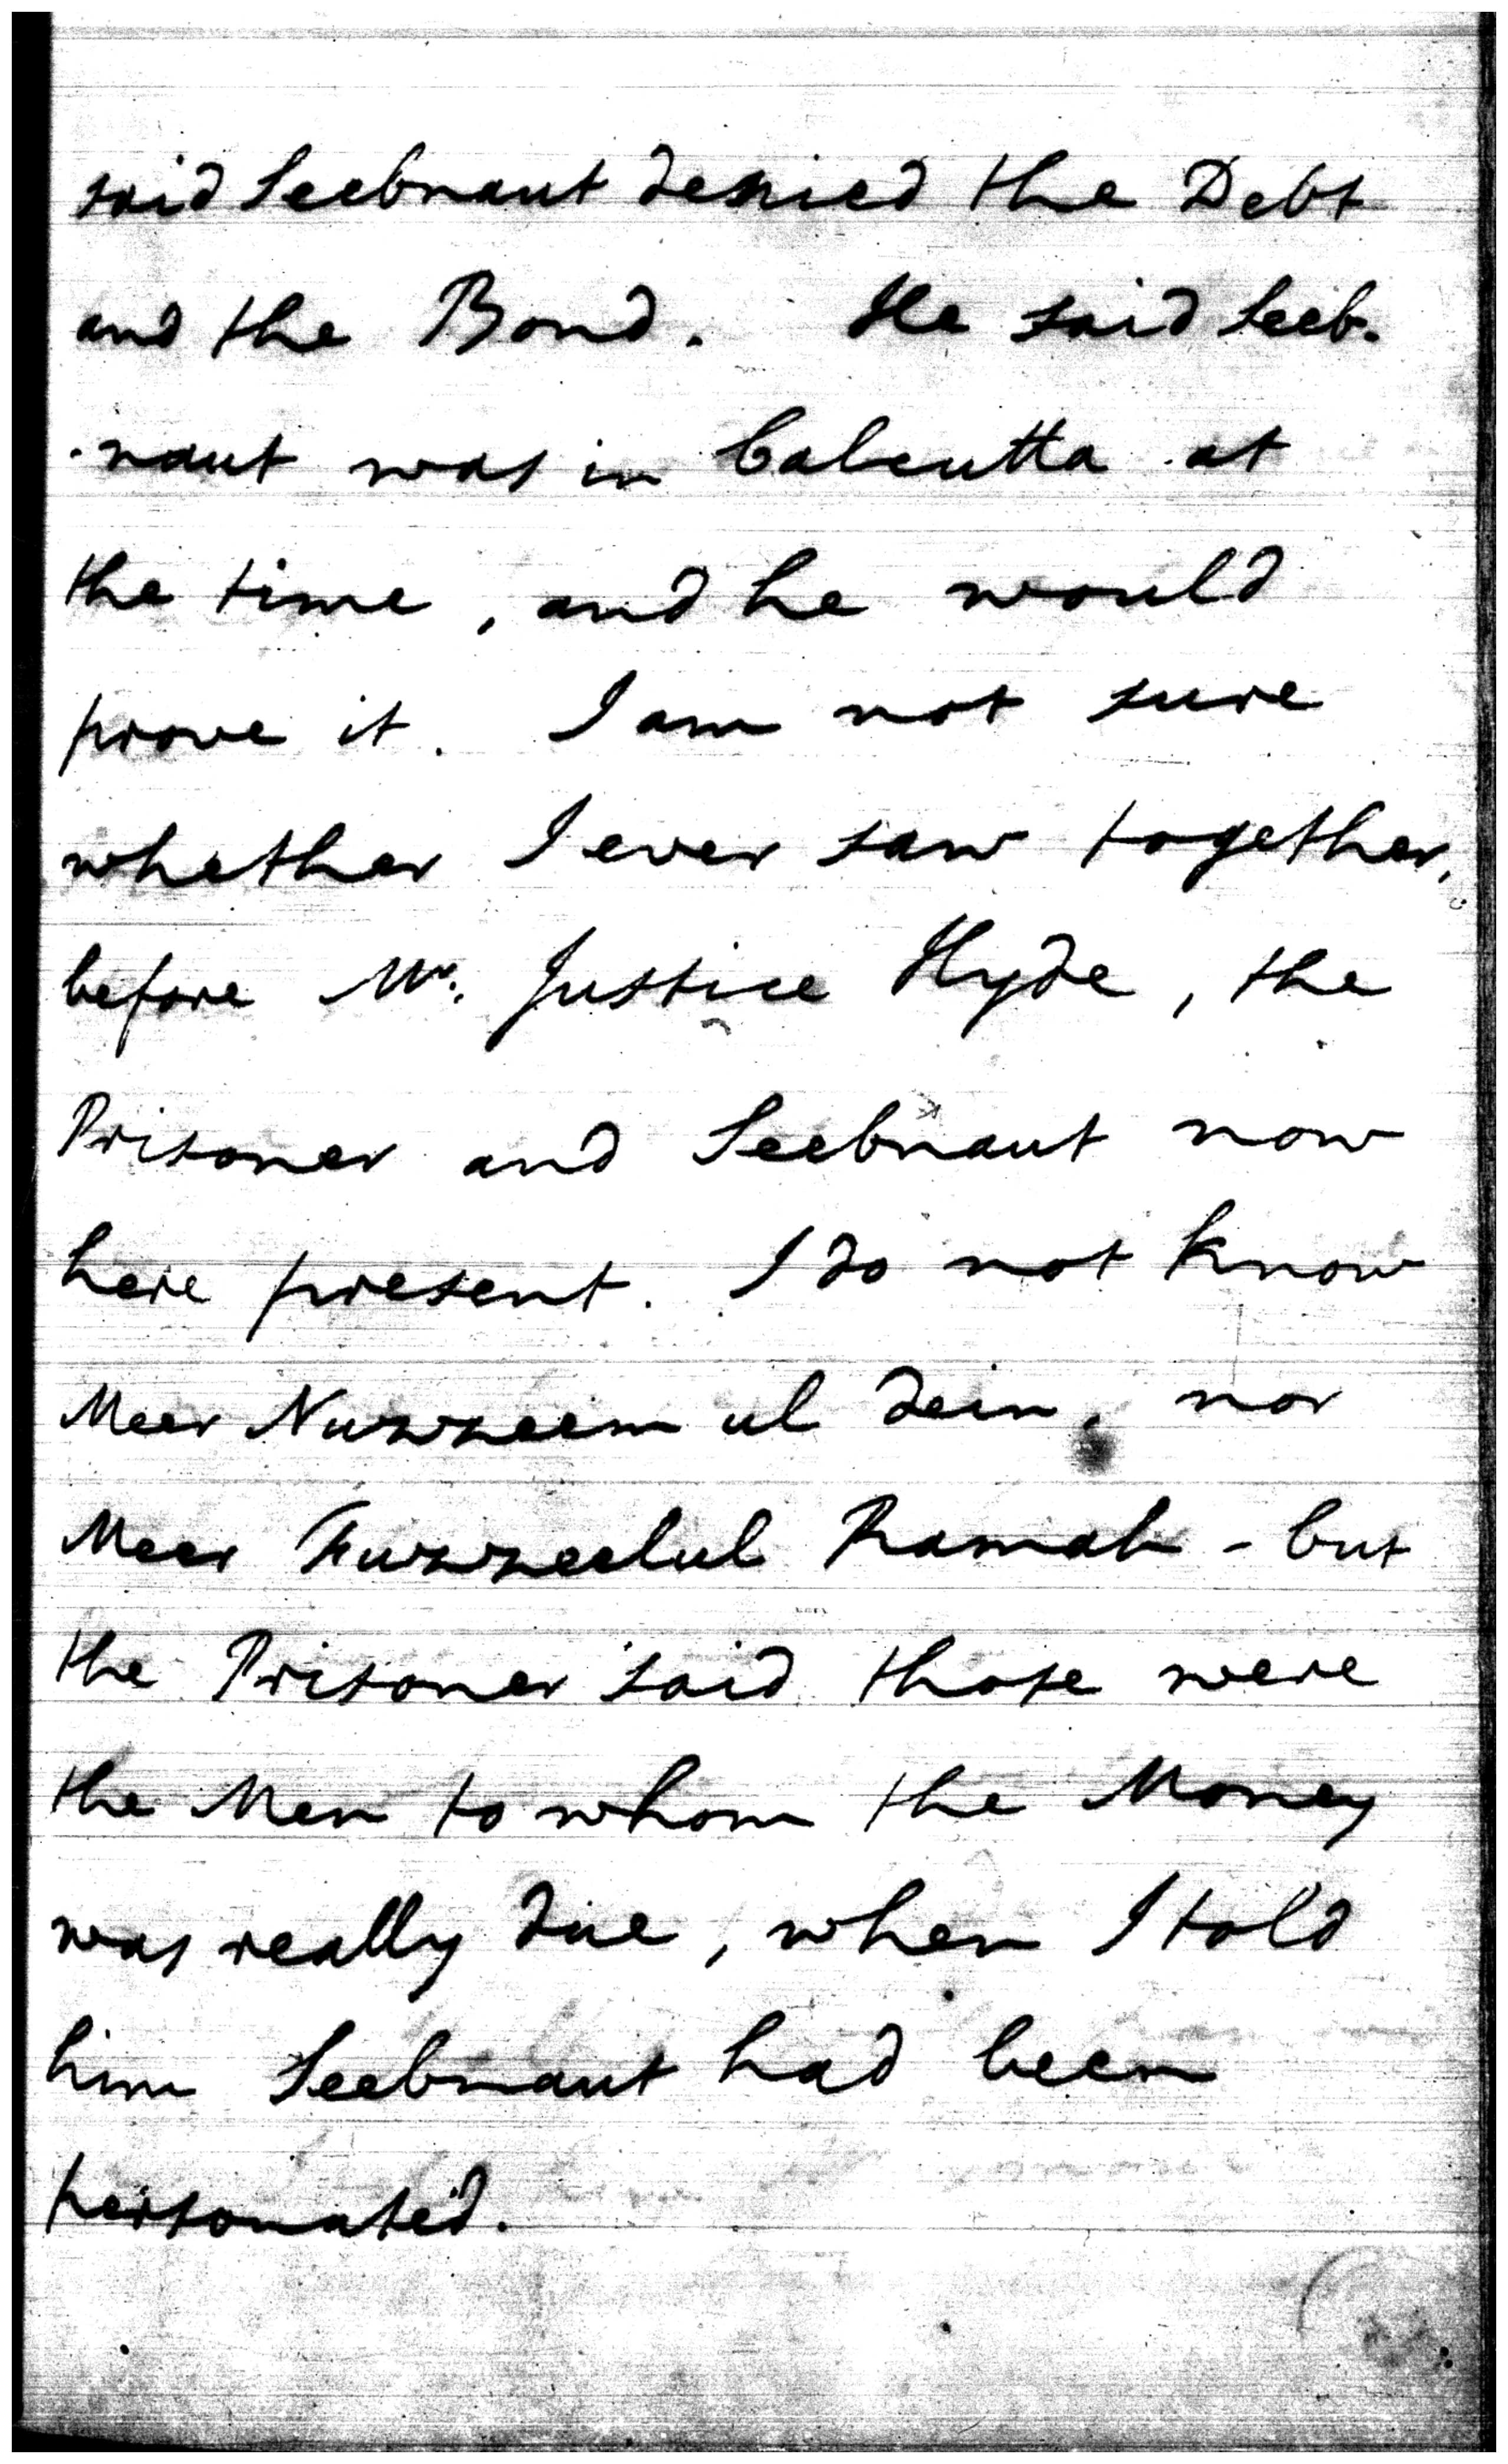 said Seebnaut denied the Debt
and the Bond. He said Seeb-
-naut was in Calcutta at
the time, and he would
prove it. I am not sure
whether I ever saw together,
before Mr. Justice Hyde, the
Prisoner and Seebnaut now
here present. I do not know
Meer Nuzzeem ul dein, nor
Meer Fuzzeelul Ramah - but
the Prisoner said those were
the Men to whom the Money
was really due, when I told
him Seebnaut had been
personated.